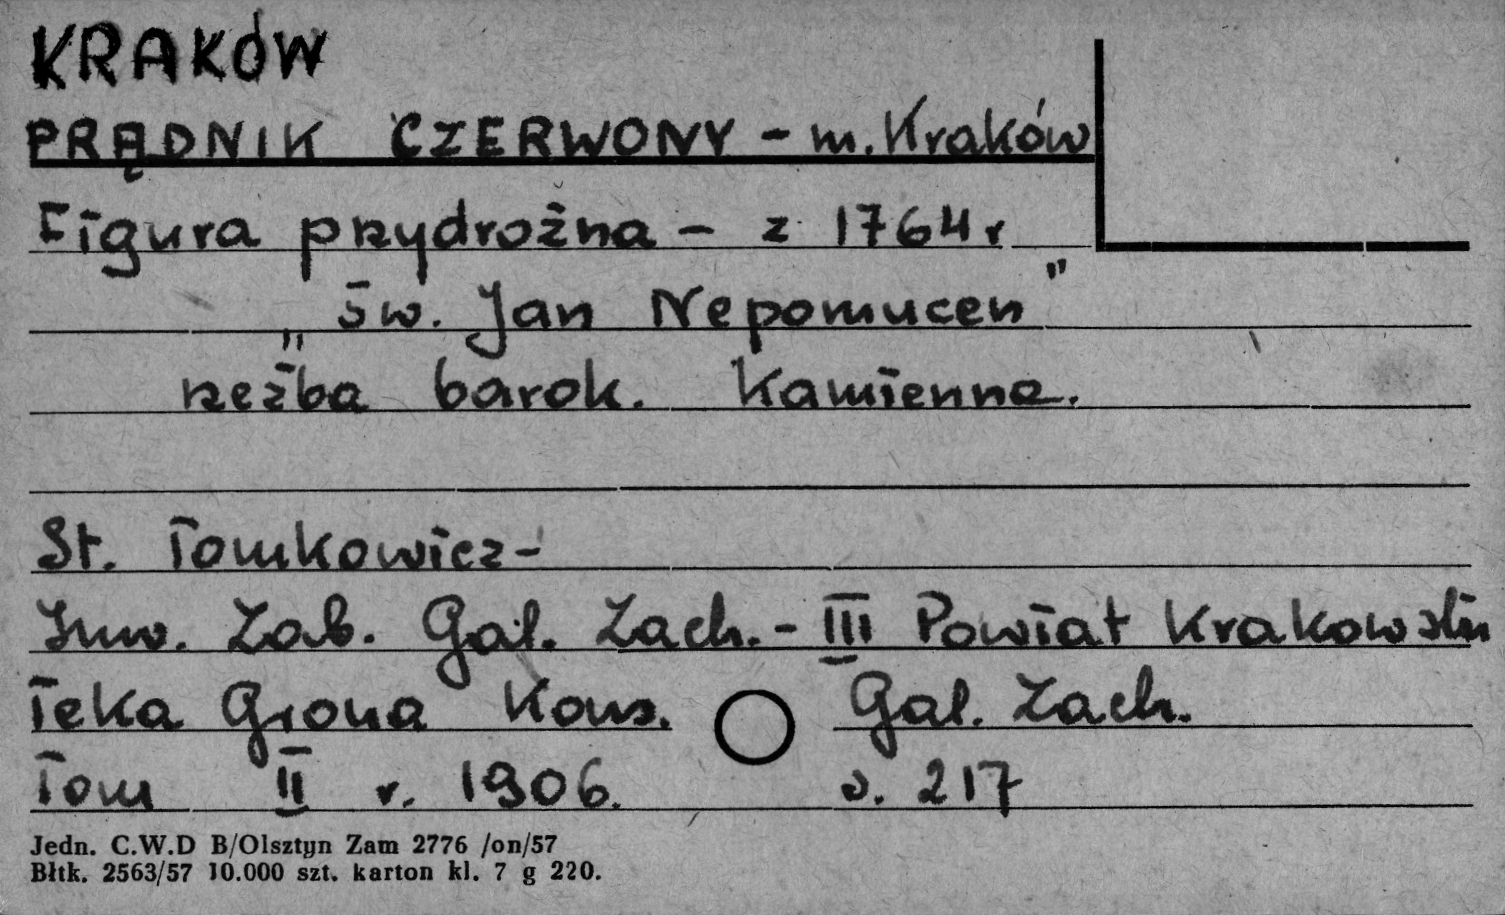 KRAKÓW
PRĄDNIK CZERWONY - m. Kraków
Figura przydrożna - z 1764 r
„św. Jan Nepomucen"
rzeźba barok. Kamienna.
St. Tomkowicz -
Inw. Zab. Gal. Zach. - III Powiat Krakowski
Teka Grona Kons. Gal. Zach.
Tom II r. 1906. s. 217
Jedn. C.W.D B/Olsztyn Zam 2776 /on/57
Błtk. 2563/57 10.000 szt. karton kl. 7 g 220.